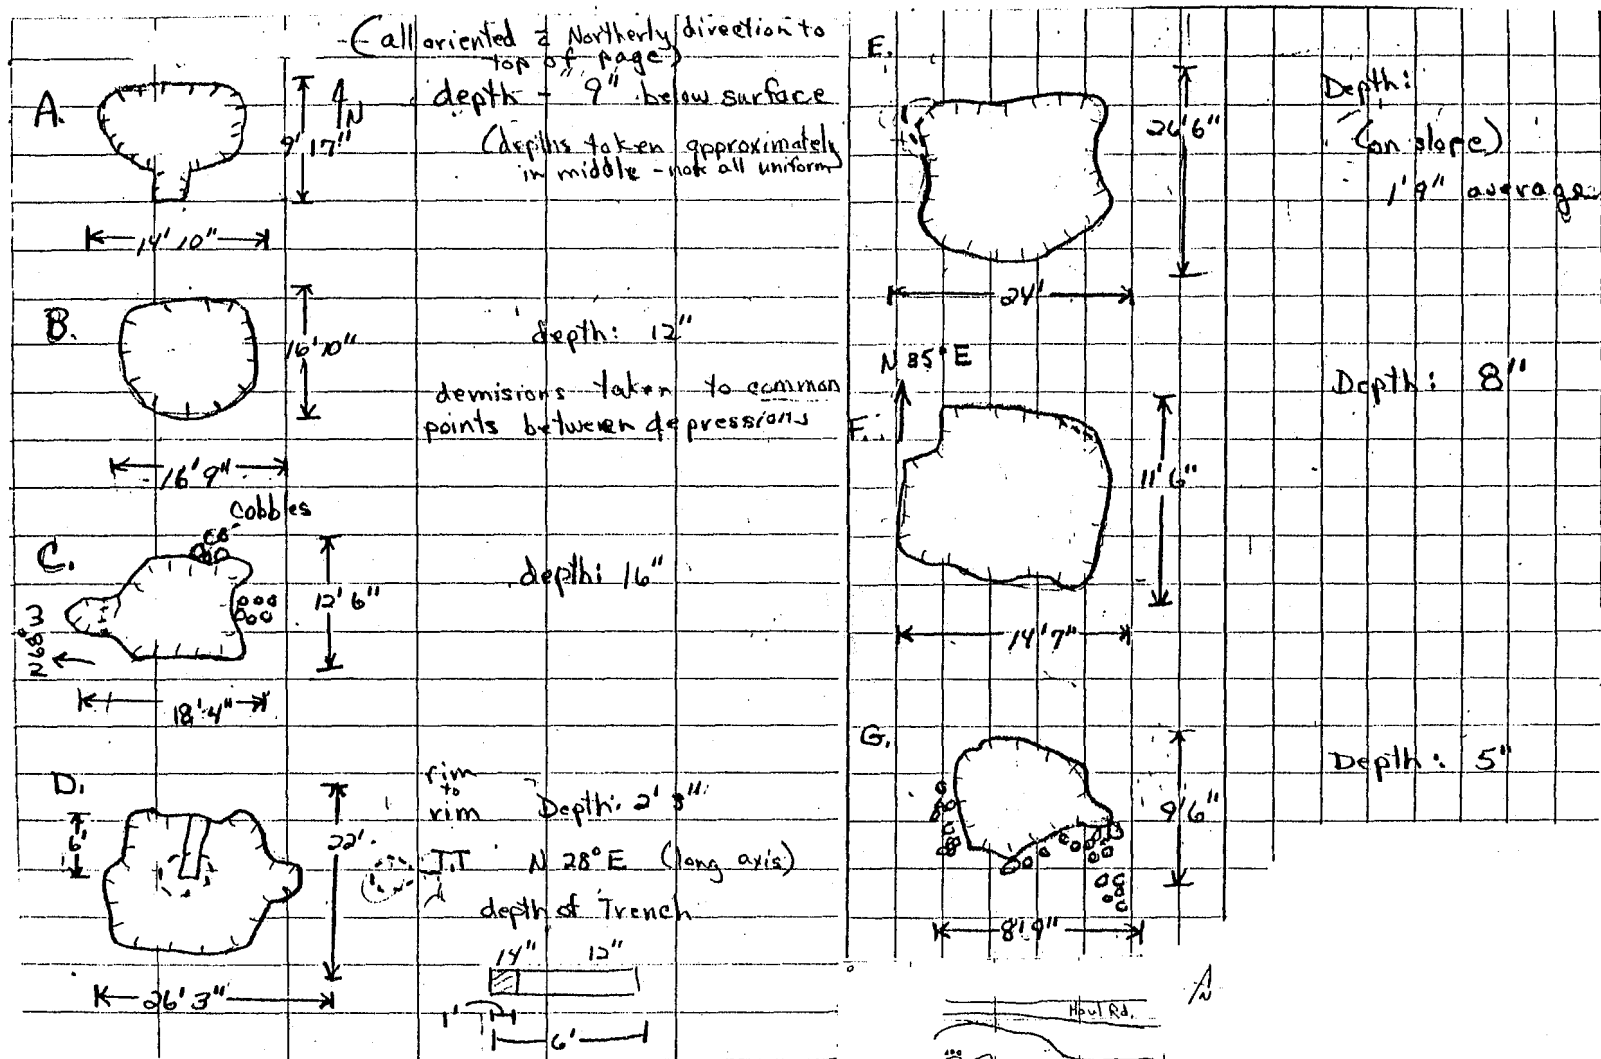 (all oriented ā Northerly direction to
top of page)
A.
N
9' 17"
14' 10"
depth - 9" below surface
(depths taken approximately
in middle - not all uniform
B.
16' 10"
16' 9"
depth: 12"
demisions taken to common
points between depressions
cobbles
C.
12' 6"
N68°W
18' 4"
depth: 16"
D.
6'
22'
26' 3"
rim
to
rim
Depth: 2' 3"
T.T N 28° E (long axis)
depth of Trench
14" 12"
1'
6'
E.
26' 6"
24'
Depth:
(on slope)
1' 9" average
N 85° E
F.
11' 6"
14' 7"
Depth: 8"
G.
9' 6"
8' 9"
Depth: 5"
N
Haul Rd.